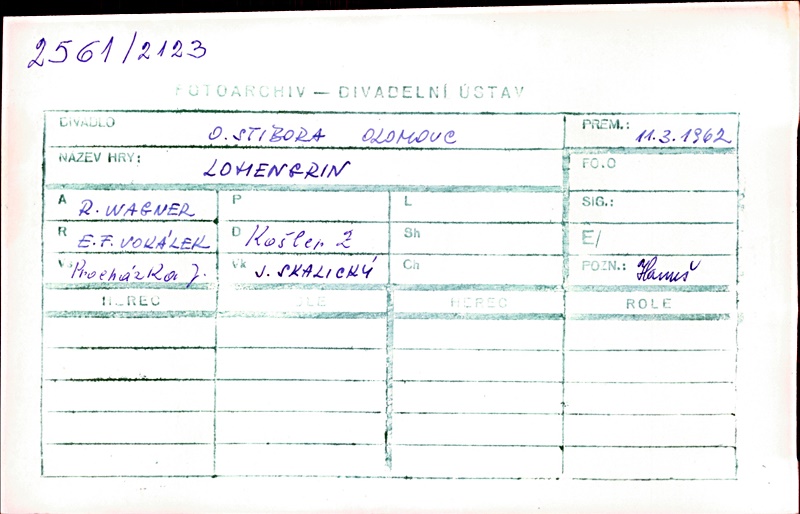 2561/2123
FOTOARCHIV — DIVADELNÍ ÚSTAV
DIVADLO O. STIBORA OLOMOUC PREM.: 11.3.1962
NÁZEV HRY: LOHENGRIN FO.O
A R. WAGNER P L SIG.:
R E. F. VOKÁLEK D Košler Z Sh Ė/
Vs Procházka J. Vk J. SKALICKÝ Ch POZN.: Hanuš
HEREC ROLE HEREC ROLE